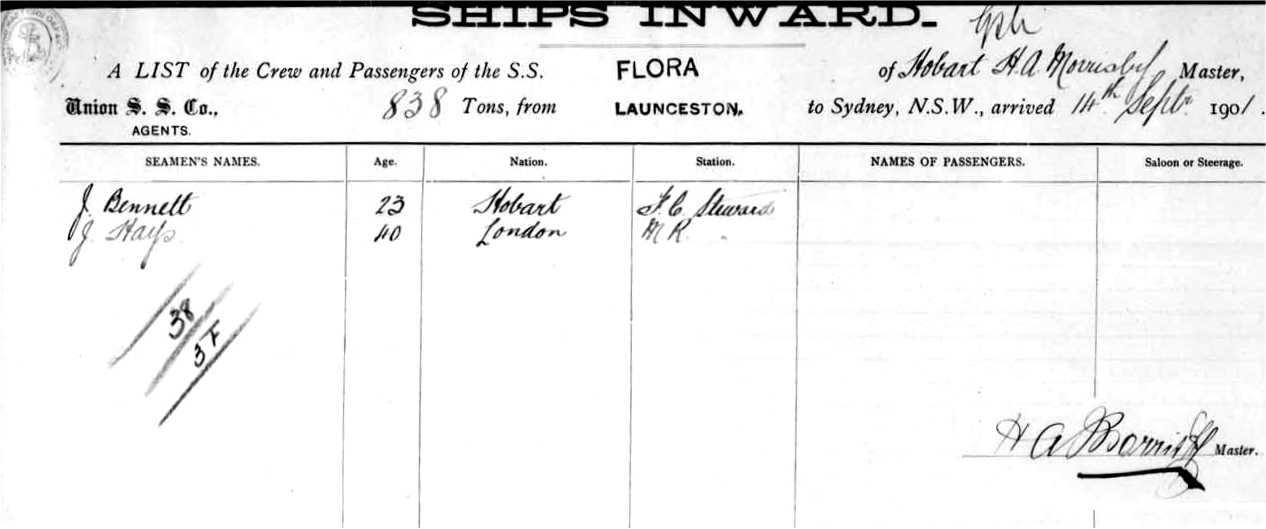 SHIPS INWARD.
A LIST of the Crew and Passengers of the S.S. FLORA of Hobart H. A. Morrisby Master,
Union S. S. Co., AGENTS. 838 Tons, from LAUNCESTON. to Sydney, N.S.W., arrived 14th Septr. 1901.
SEAMEN'S NAMES. Age. Nation. Station. NAMES OF PASSENGERS. Saloon or Steerage.
J. Bennett 23 Hobart F. C. Steward
J. Hays 40 London M R. "
38
37
H A Morrisby Master.